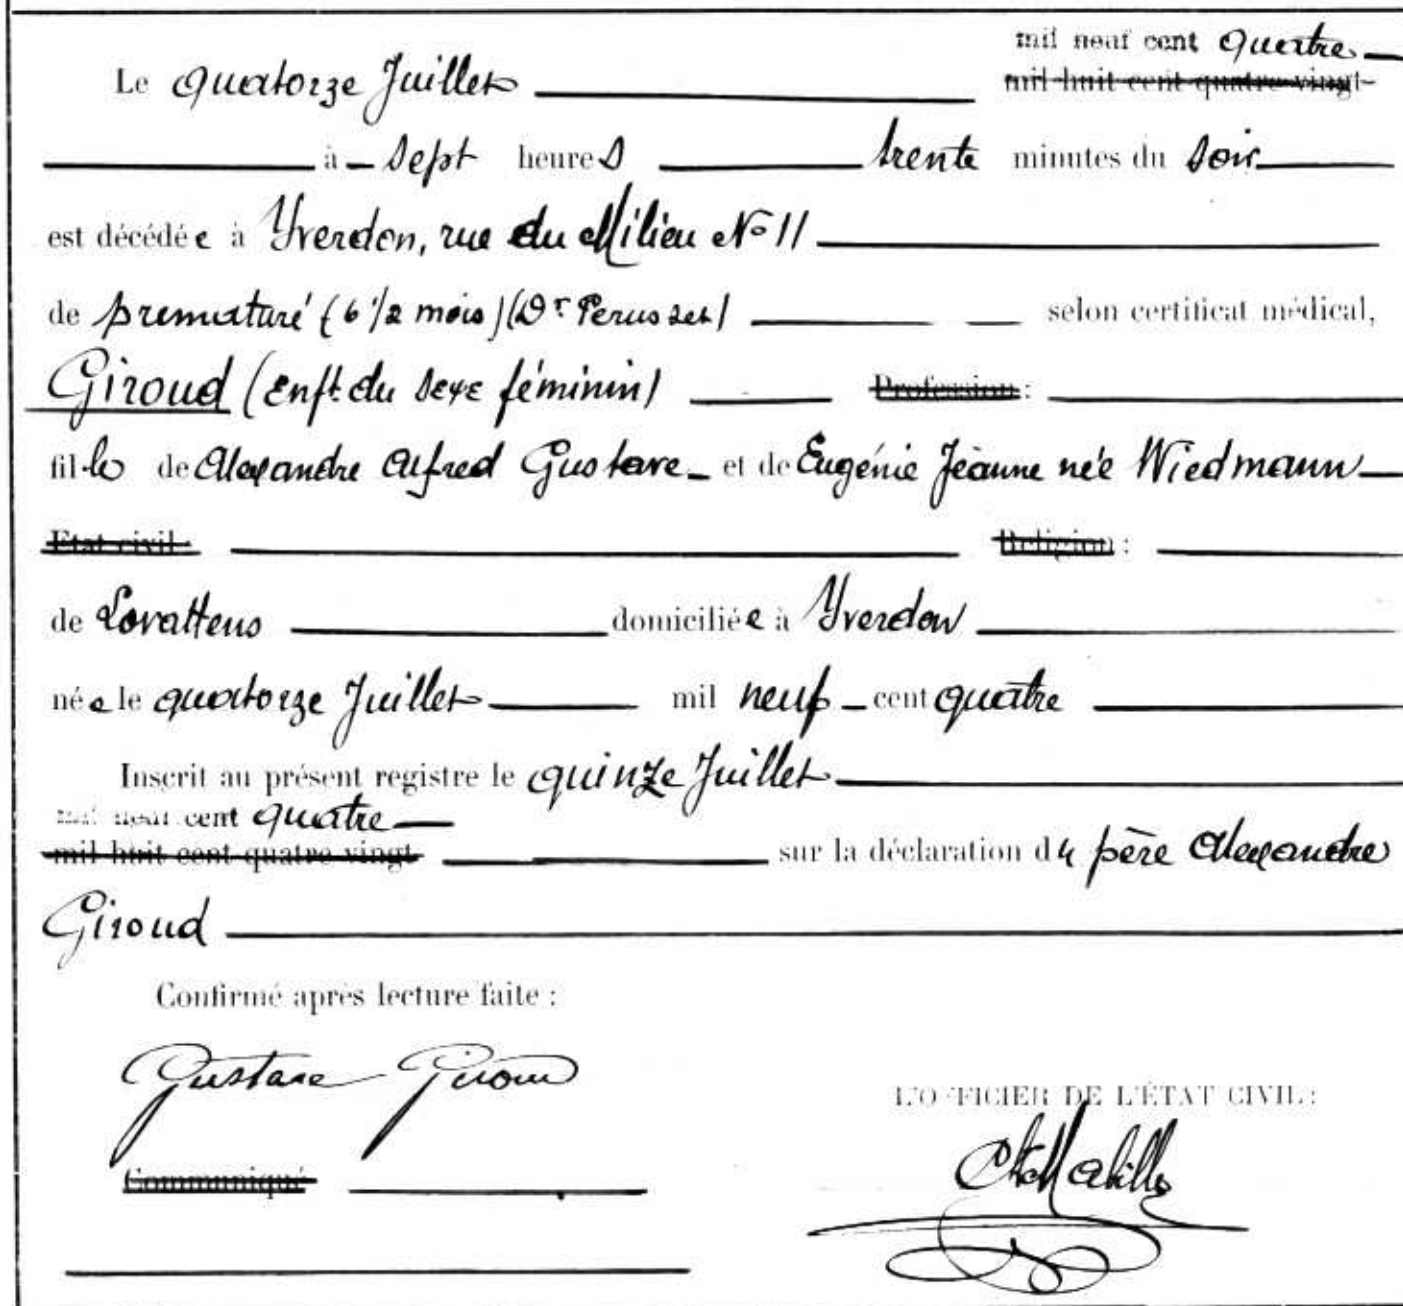 mil neuf cent quatre
Le quatorze Juillet mil huit cent quatre-vingt-
à sept heures trente minutes du soir
est décédée à Yverdon, rue du Milieu No 11
de prematuré (6 1/2 mois) (Dr Perusset) selon certificat médical,
Giroud (Enft. du sexe féminin) Profession :
fille de Alexandre Alfred Gustave et de Eugénie Jeanne née Wiedmann
Etat civil : Religion :
de Lovattens domiciliée à Yverdon
née le quatorze Juillet mil neuf cent quatre
Inscrit au présent registre le quinze Juillet
mil neuf cent quatre
mil huit cent quatre-vingt- sur la déclaration du père Alexandre
Giroud
Confirmé après lecture faite :
Gustave Giroud
L'OFFICIER DE L'ÉTAT CIVIL :
Communiqué